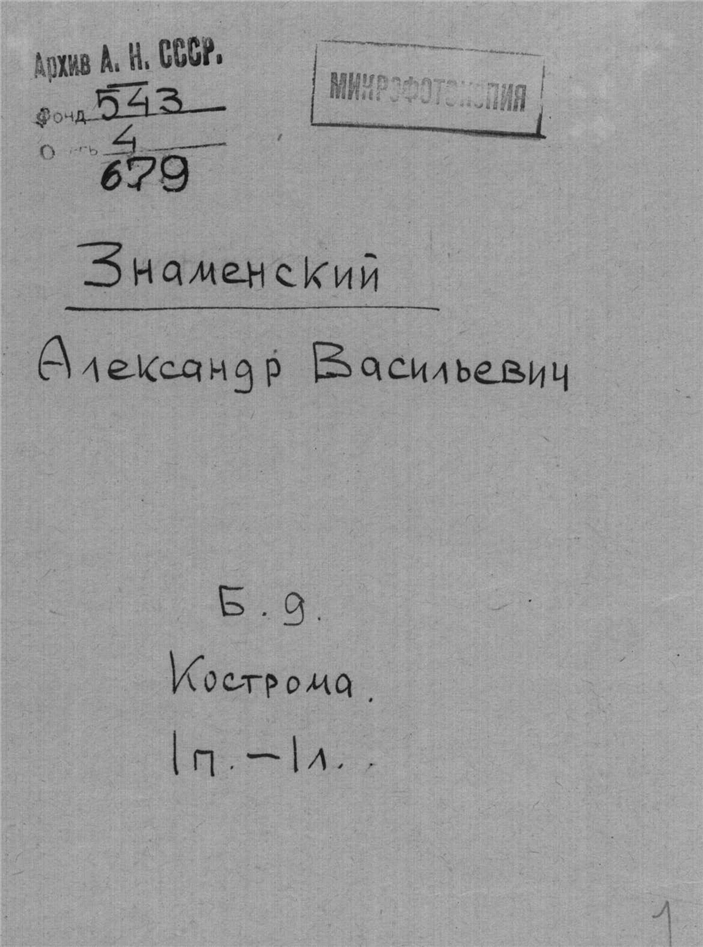 Архив А. Н. СССР.
Фонд 543
4
679
МИКРОФОТОКОПИЯ
Знаменский
Александр Васильевич
Б. д.
Кострома.
1 п. – 1 л.
1